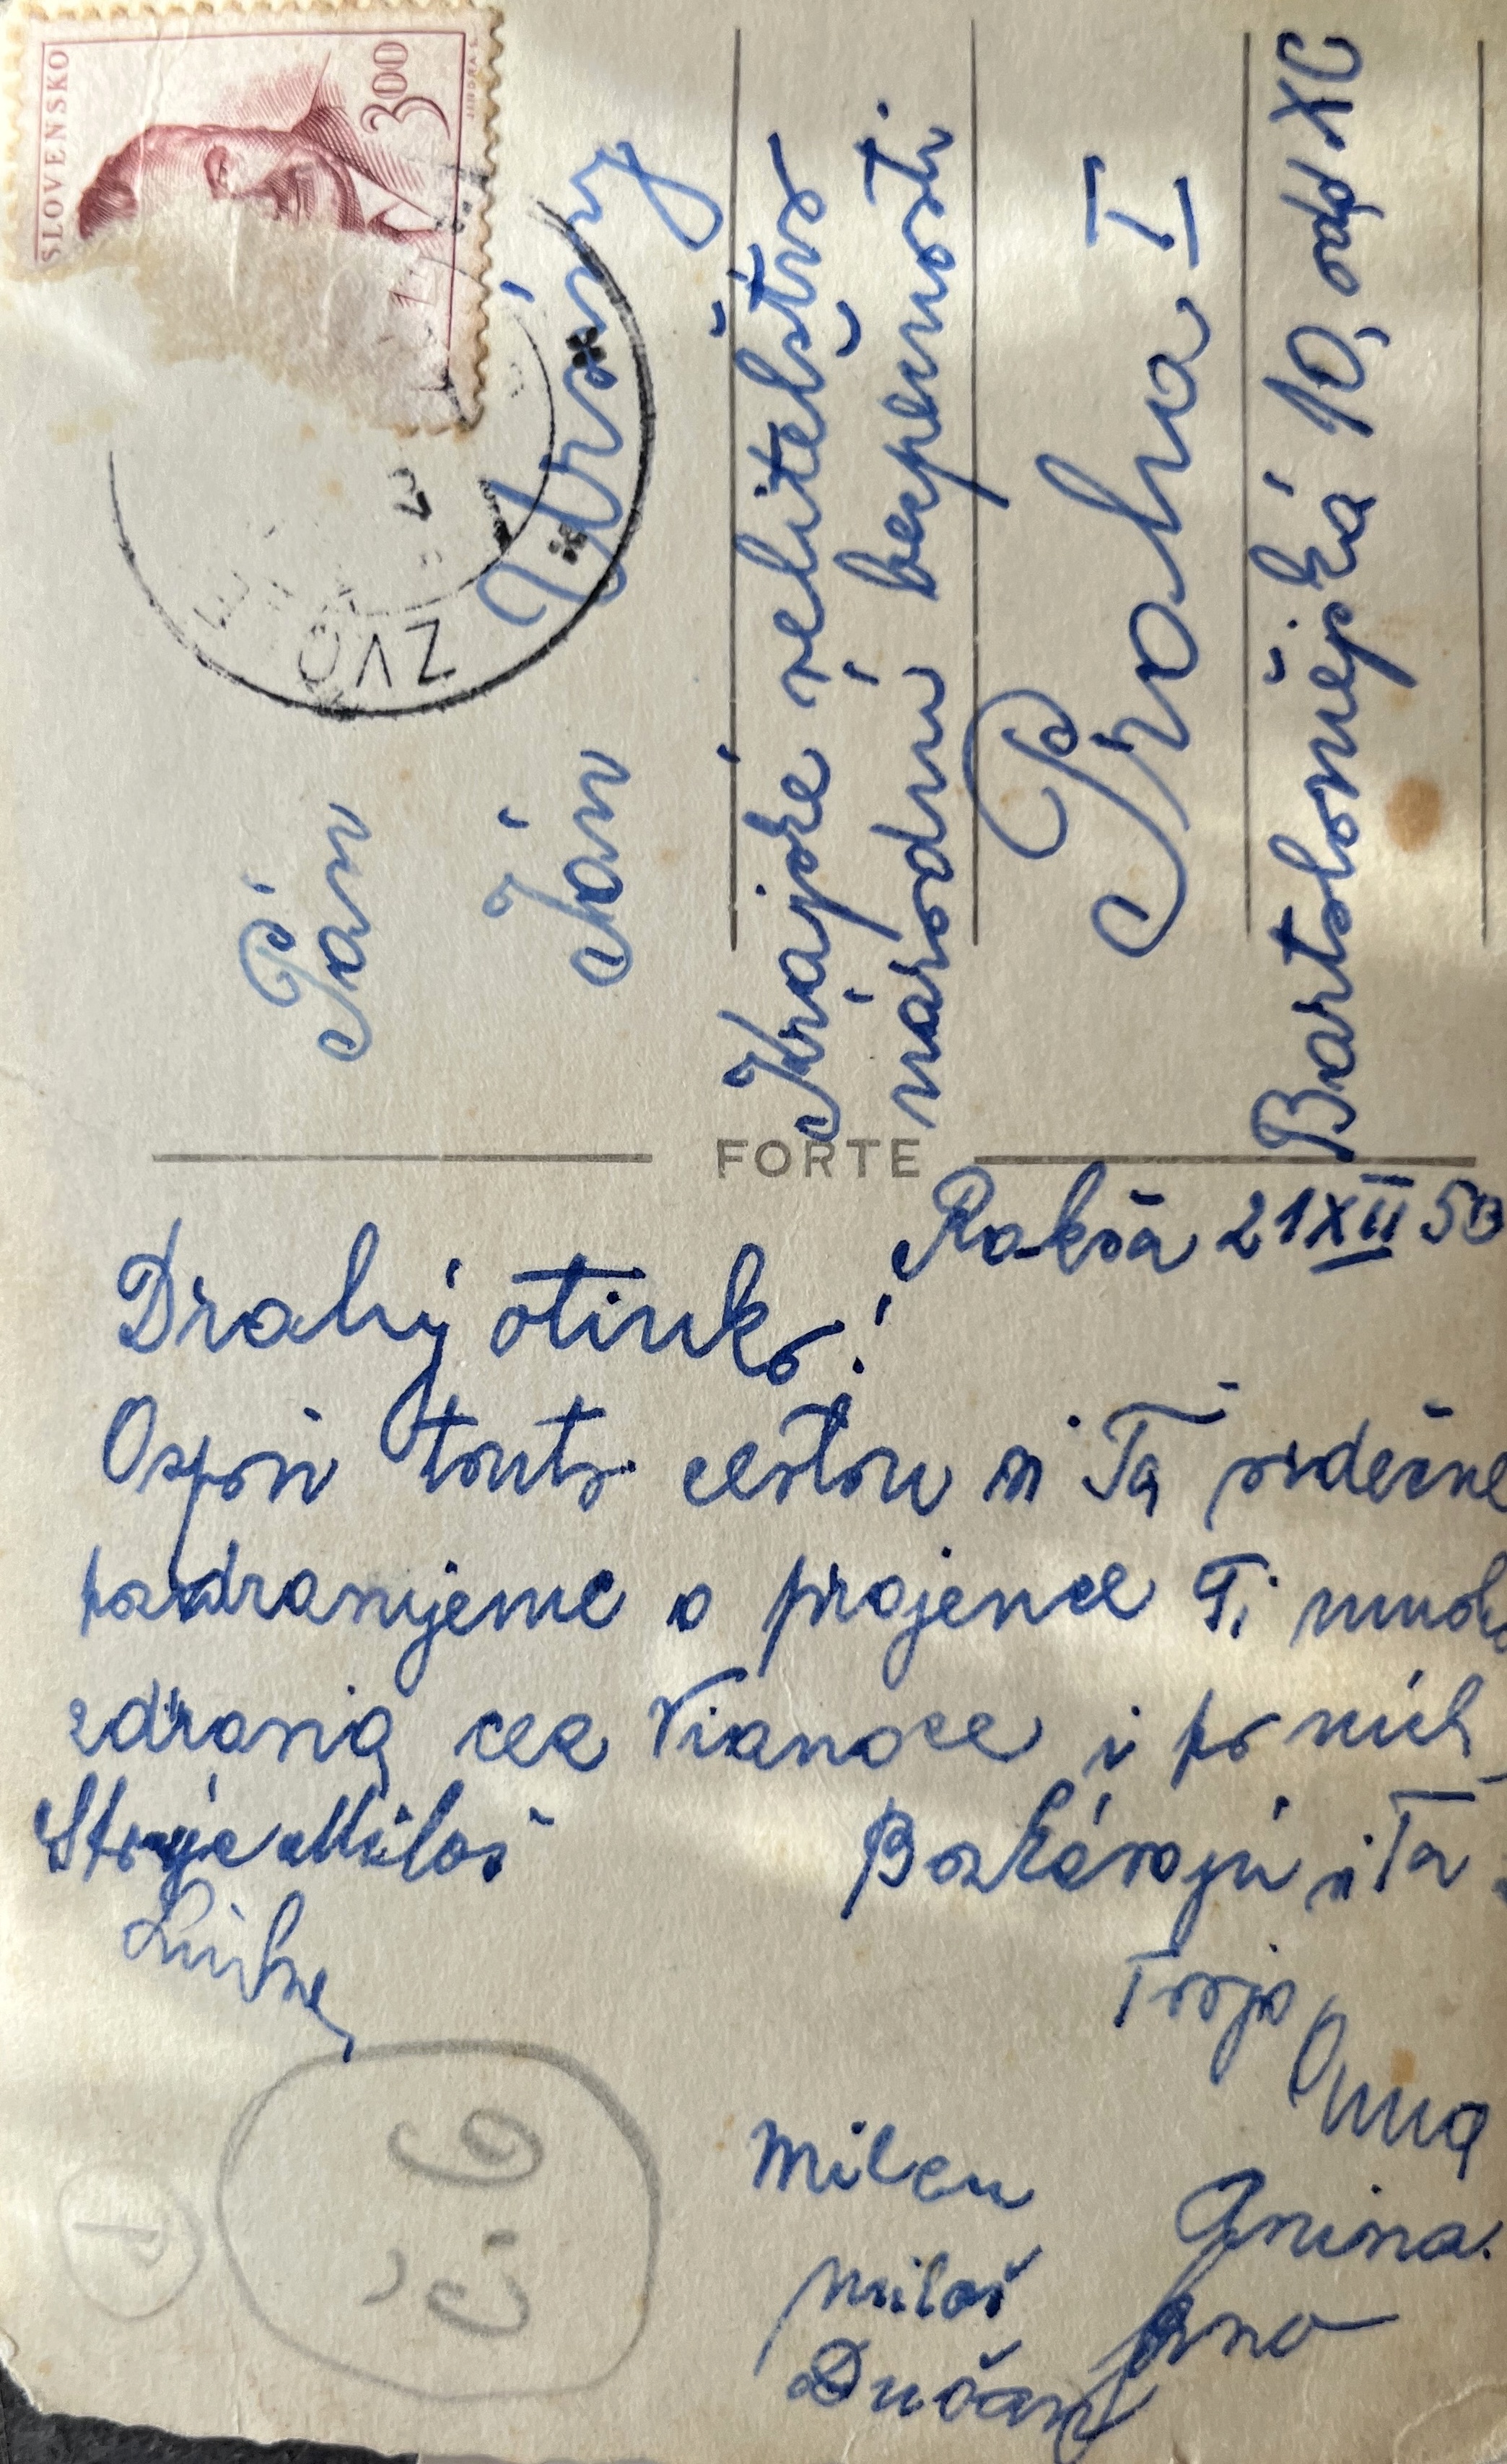 SLOVENSKO
3.00
JINDRA S.
ZVO
Pán
Ján
Krajské velitelštvo
národní bezpečnosti
Praha I
Bartolomějská 10, odd XC
FORTE
Rakša 21 XII 50
Drahý otinko!
Aspoň touto cestou si Ťa srdečne
pozdravujeme a prajeme Ti mnoho
zdravia cez Vianoce i po ních,
Bozkávajú si Ťa
Strýc Miloš
Tvoja
Anna
Milan
Anina.
Miloš
Dušan